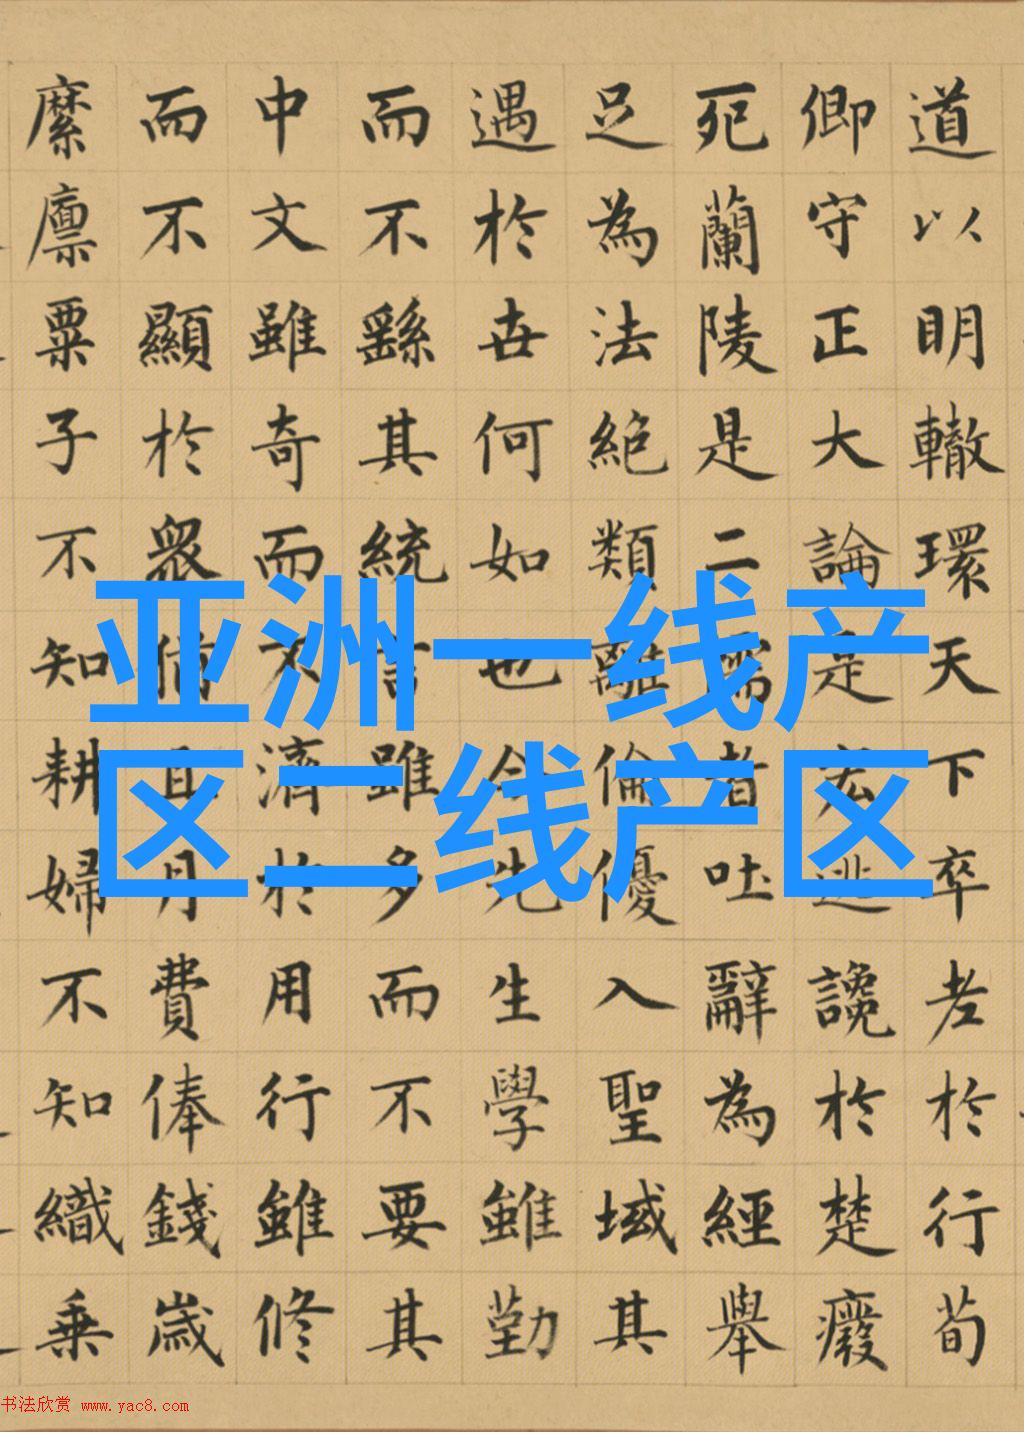 道以明轍環天下卒老於行荀
卿守正大論是宏逃讒於楚癈
死蘭陵是二儒者吐辭為經舉
足為法絕類離倫優入聖域其
遇於世何如也今先生學雖勤
而不繇其統言雖多而不要其
中文雖奇而不濟於用行雖修
而不顯於衆猶且月費俸錢歲
縻廩粟子不知耕婦不知織乘
亚洲一线产
区二线产区
书法欣赏 www.yac8.com